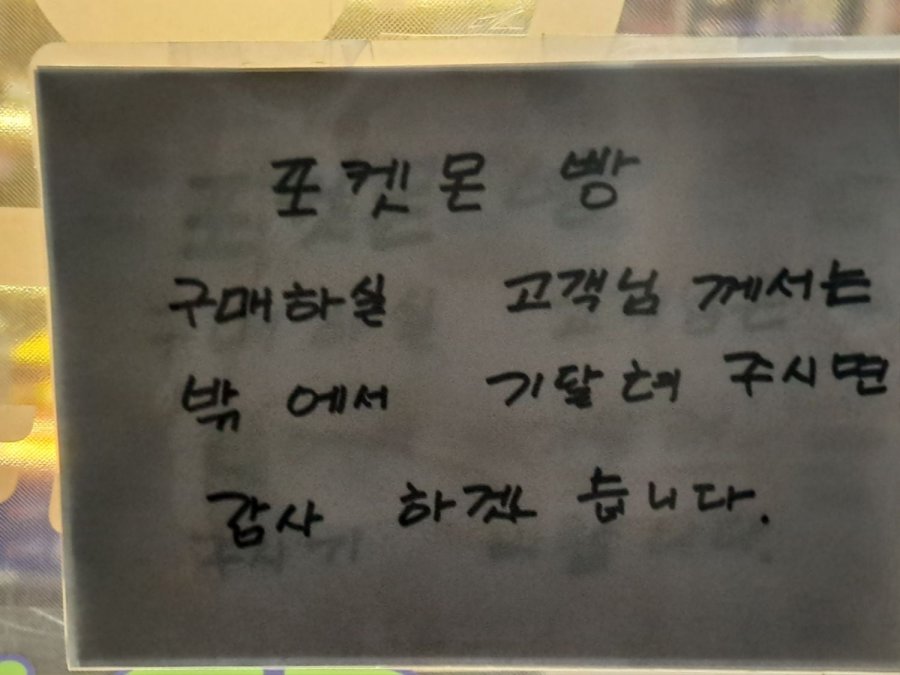 포켓몬 빵
구매하실 고객님 께서는
밖 에서 기달려 주시면
감사 하겠 습니다.